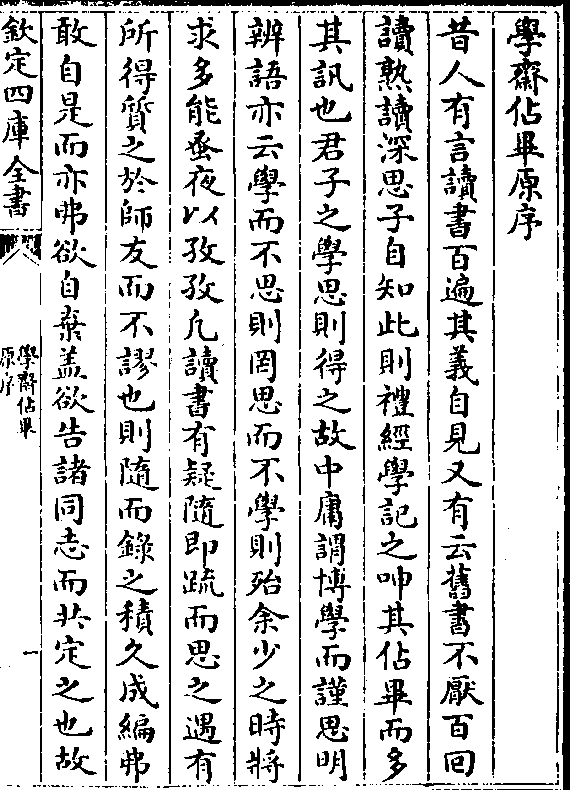 學齋佔畢原序
昔人有言讀書百遍其義自見又有云舊書不厭百回
讀熟讀深思子自知此則禮經學記之呻其佔畢而多
其訊也君子之學思則得之故中庸謂博學而謹思明
辨語亦云學而不思則罔思而不學則殆余少之時將
求多能蚤夜以孜孜凡讀書有疑隨即疏而思之遇有
所得質之於師友而不謬也則隨而錄之積久成編弗
敢自是而亦弗欲自棄盖欲告諸同志而共定之也故
欽定四庫全書
學齋佔畢
原序
一